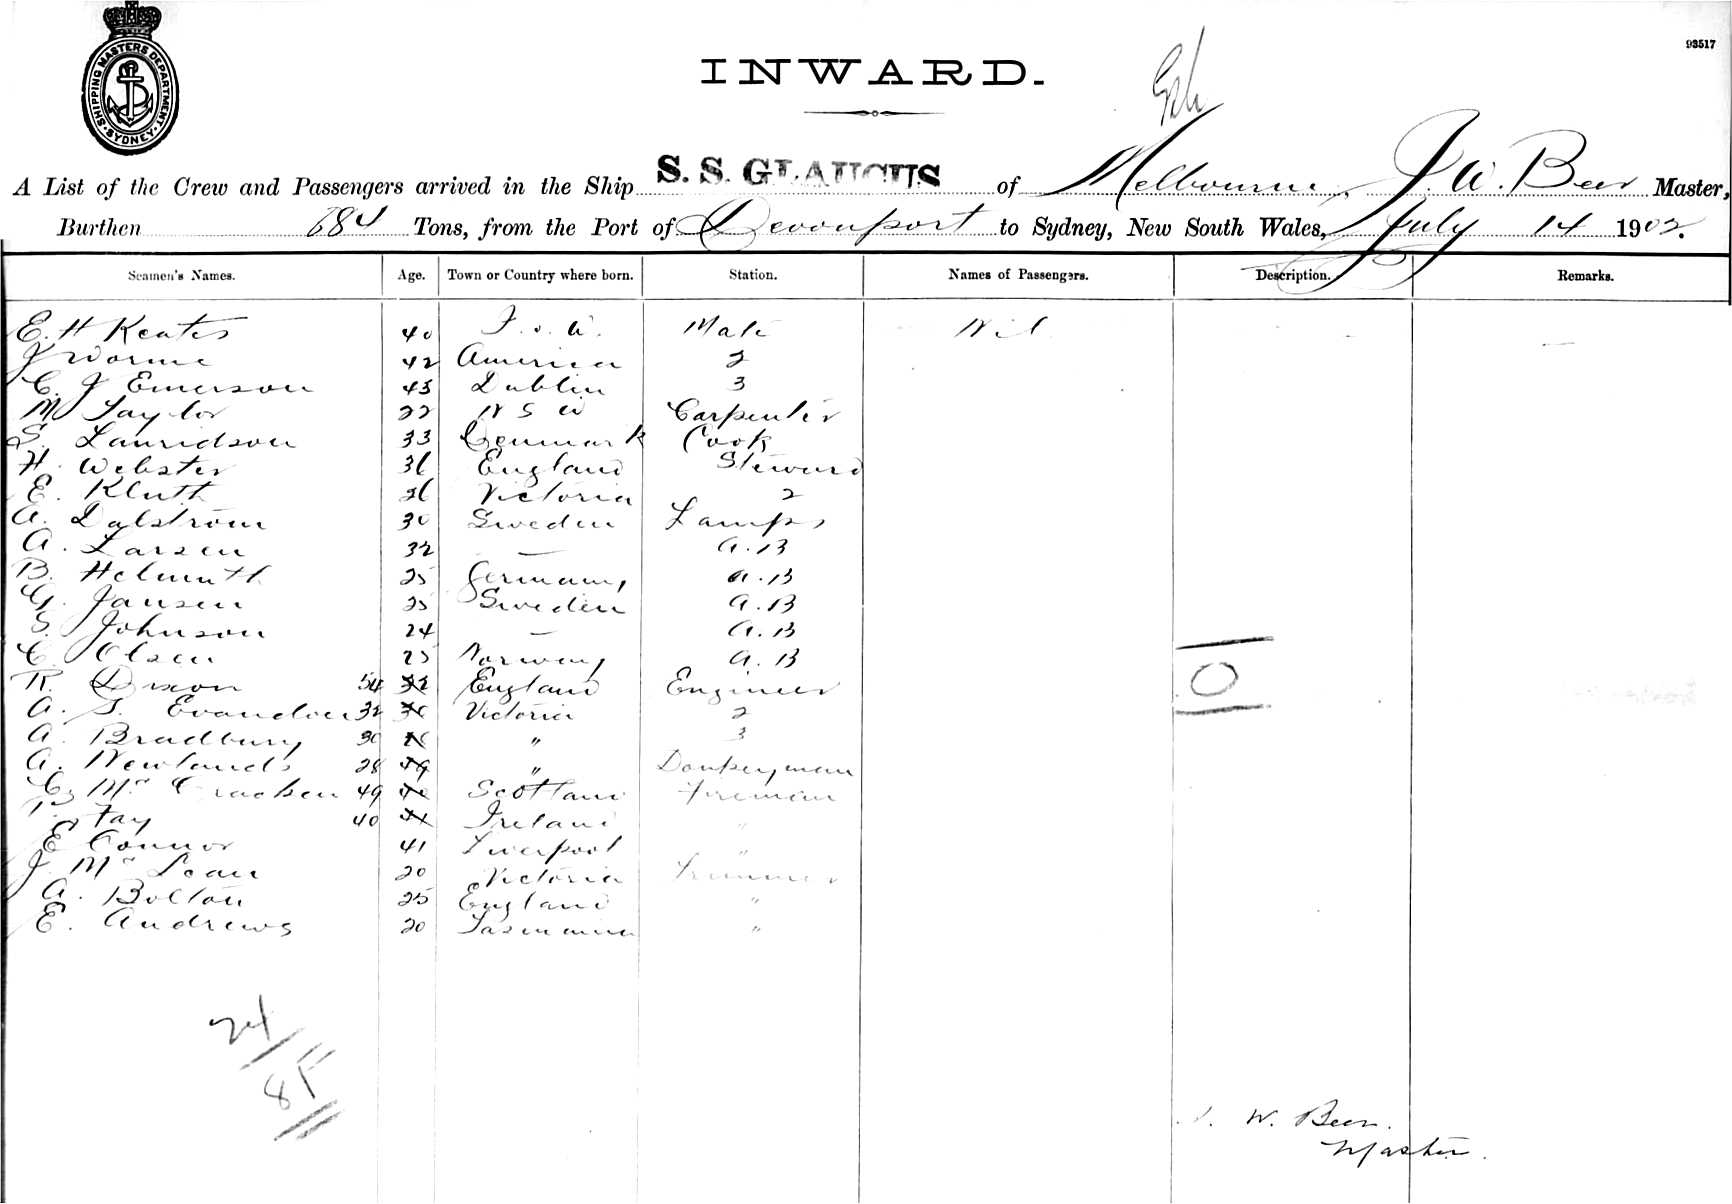 SHIPPING MASTERS DEPARTMENT
SYDNEY
93517
INWARD.
A List of the Crew and Passengers arrived in the Ship S. S. GLAUCUS of Melbourne, J. W. Beer Master,
Burthen 684 Tons, from the Port of Devonport to Sydney, New South Wales, July 14 1902.
Seamen's Names. Age. Town or Country where born. Station. Names of Passengers. Description. Remarks.
E. H Keates 40 I. o. W. Mate Nil
J Worme 42 America 2
C. J Emerson 43 Dublin 3
M Taylor 22 N S W Carpenter
S. Lauridson 33 Denmark Cook
H. Webster 36 England Steward
E. Kluth 26 Victoria 2
A. Dalstrom 30 Sweden Lamps
A. Larsen 32 — A.B
B. Helmuth 25 Germany A.B
G. Jansen 25 Sweden A.B
S. Johnson 24 — A.B
C. Olsen 25 Norway A.B
R. Dixon 54 32 England Engineer
A. S. 32 Victoria 2
A. Bradbury 30 " 3
A. Newlands 28 " Donkeyman
C. Mc Cracken 49 Scotland Fireman
Fay 40 Ireland "
E Connor 41 Liverpool "
J. Mc Lean 20 Victoria Trimmer
A. Bolton 25 England "
E. Andrews 20 Tasmania "
24
8F
J. W. Beer.
Master.